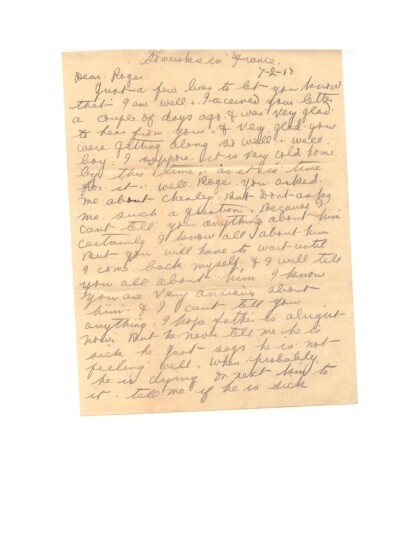 Somewhere in France.
7-2-17
Dear Roger.
Just a few lines to let you know
that I am well. I received your letter
a couple of days ago & was very glad
to hear from you & very glad you
were getting along so well. well
boy. I suppose it is very cold home
by this time. as it is time
for it. well Roge. you asked
me about Charley But Dont ask
me such a question. Because I
cant tell you anything about him
certainly I know all about him
But you will have to wait until
I come back myself & I will tell
you all about him I know
you are very anxious about
him & I cant tell you
anything. I hope father is alright
now. But he never tell me he is
sick he Just says he is not
feeling well. when probably
he is dying or next him to
it. tell me if he is sick